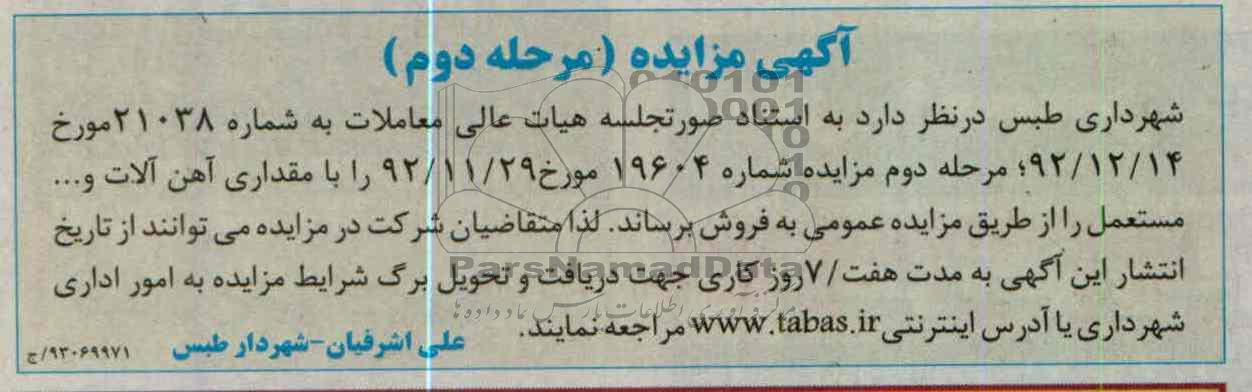 آگهی مزایده (مرحله دوم)
شهرداری طبس درنظر دارد به استناد صورتجلسه هیات عالی معاملات به شماره ۲۱۰۳۸مورخ
۹۲/۱۲/۱۴؛ مرحله دوم مزایده شماره ۱۹۶۰۴ مورخ۹۲/۱۱/۲۹ را با مقداری آهن آلات و...
مستعمل را از طریق مزایده عمومی به فروش برساند. لذا متقاضیان شرکت در مزایده می توانند از تاریخ
انتشار این آگهی به مدت هفت/۷روز کاری جهت دریافت و تحویل برگ شرایط مزایده به امور اداری
ParsNamadData
شهرداری یا آدرس اینترنتی www.tabas.ir مراجعه نمایند.
علی اشرفیان-شهردار طبس
۹۳۰۶۹۹۷۱/ج